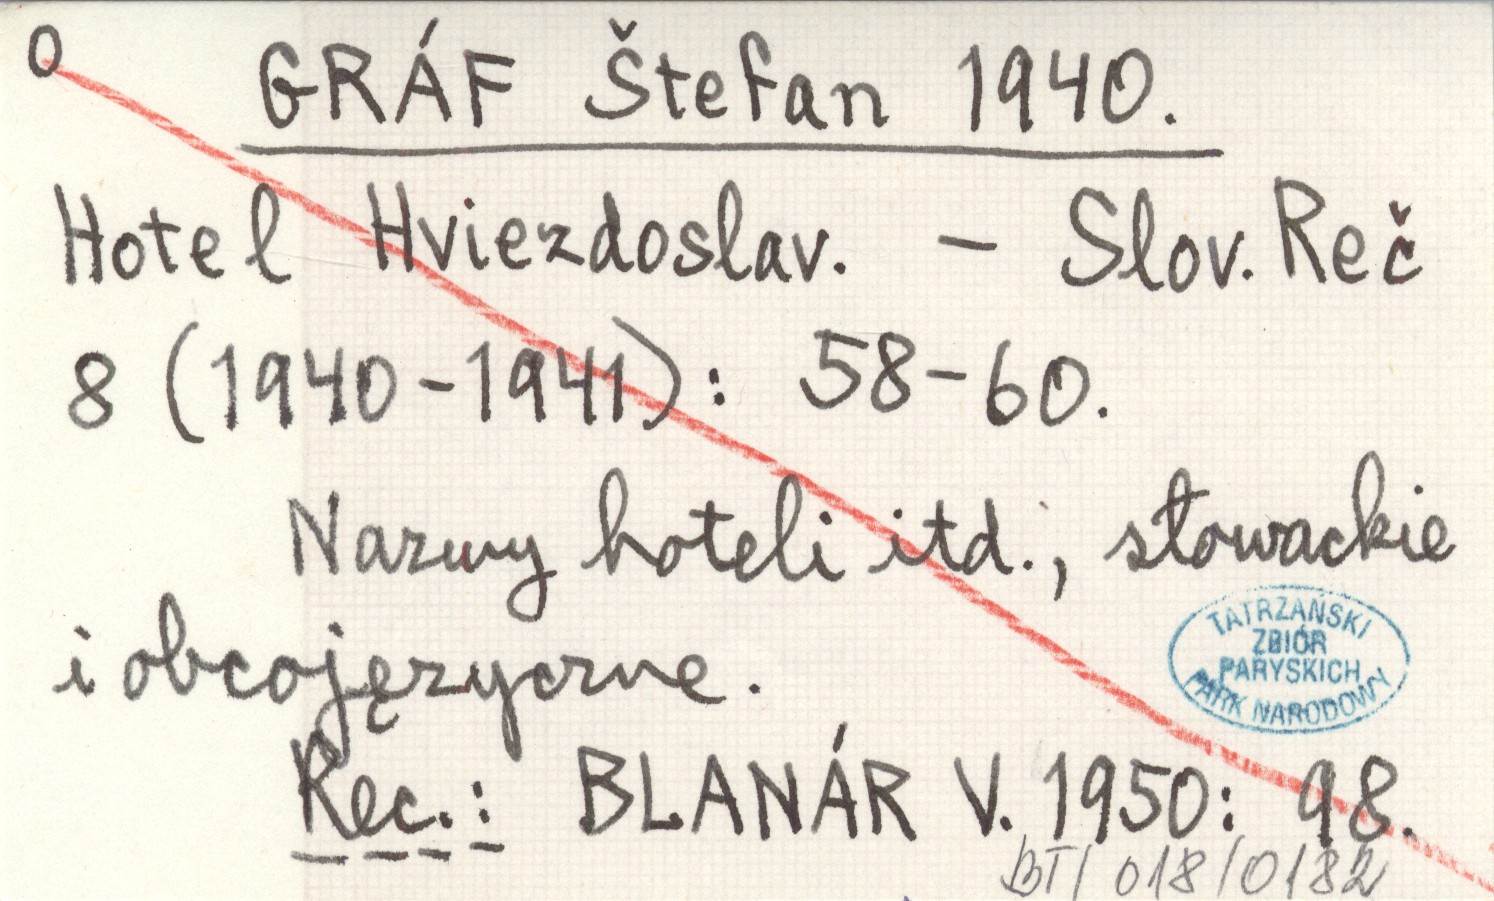 O
GRÁF Štefan 1940.
Hotel Hviezdoslav. – Slov. Reč
8 (1940-1941): 58-60.
Nazwy hoteli itd., słowackie
i obcojęzyczne.
TATRZAŃSKI
ZBIÓR
PARYSKICH
PARK NARODOWY
Rec.: BLANÁR V. 1950: 98.
BT/018/0182